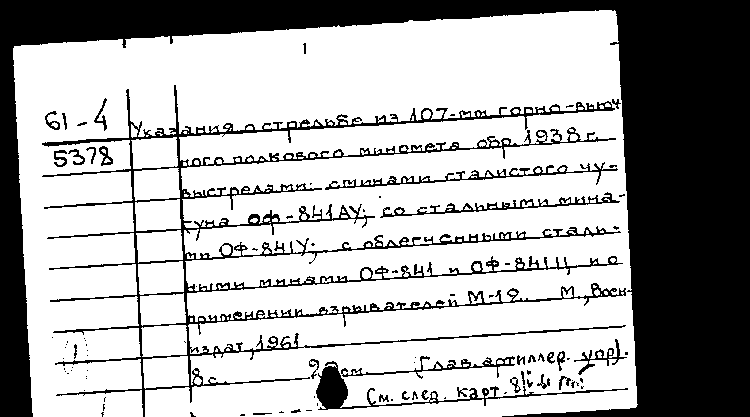 61-4
5378
Указания о стрельбе из 107-мм горно-вьюч
ного полкового миномета обр. 1938 г.
выстрелами: с минами сталистого чу-
гуна ОФ-841АУ; со стальными мина-
ми ОФ-841У; с облегченными сталь-
ными минами ОФ-841 и ОФ-841Ц и о
применении взрывателей М-12. М., Воен-
издат, 1961.
8 с. см. (Глав. артиллер. упр).
См. след. карт.